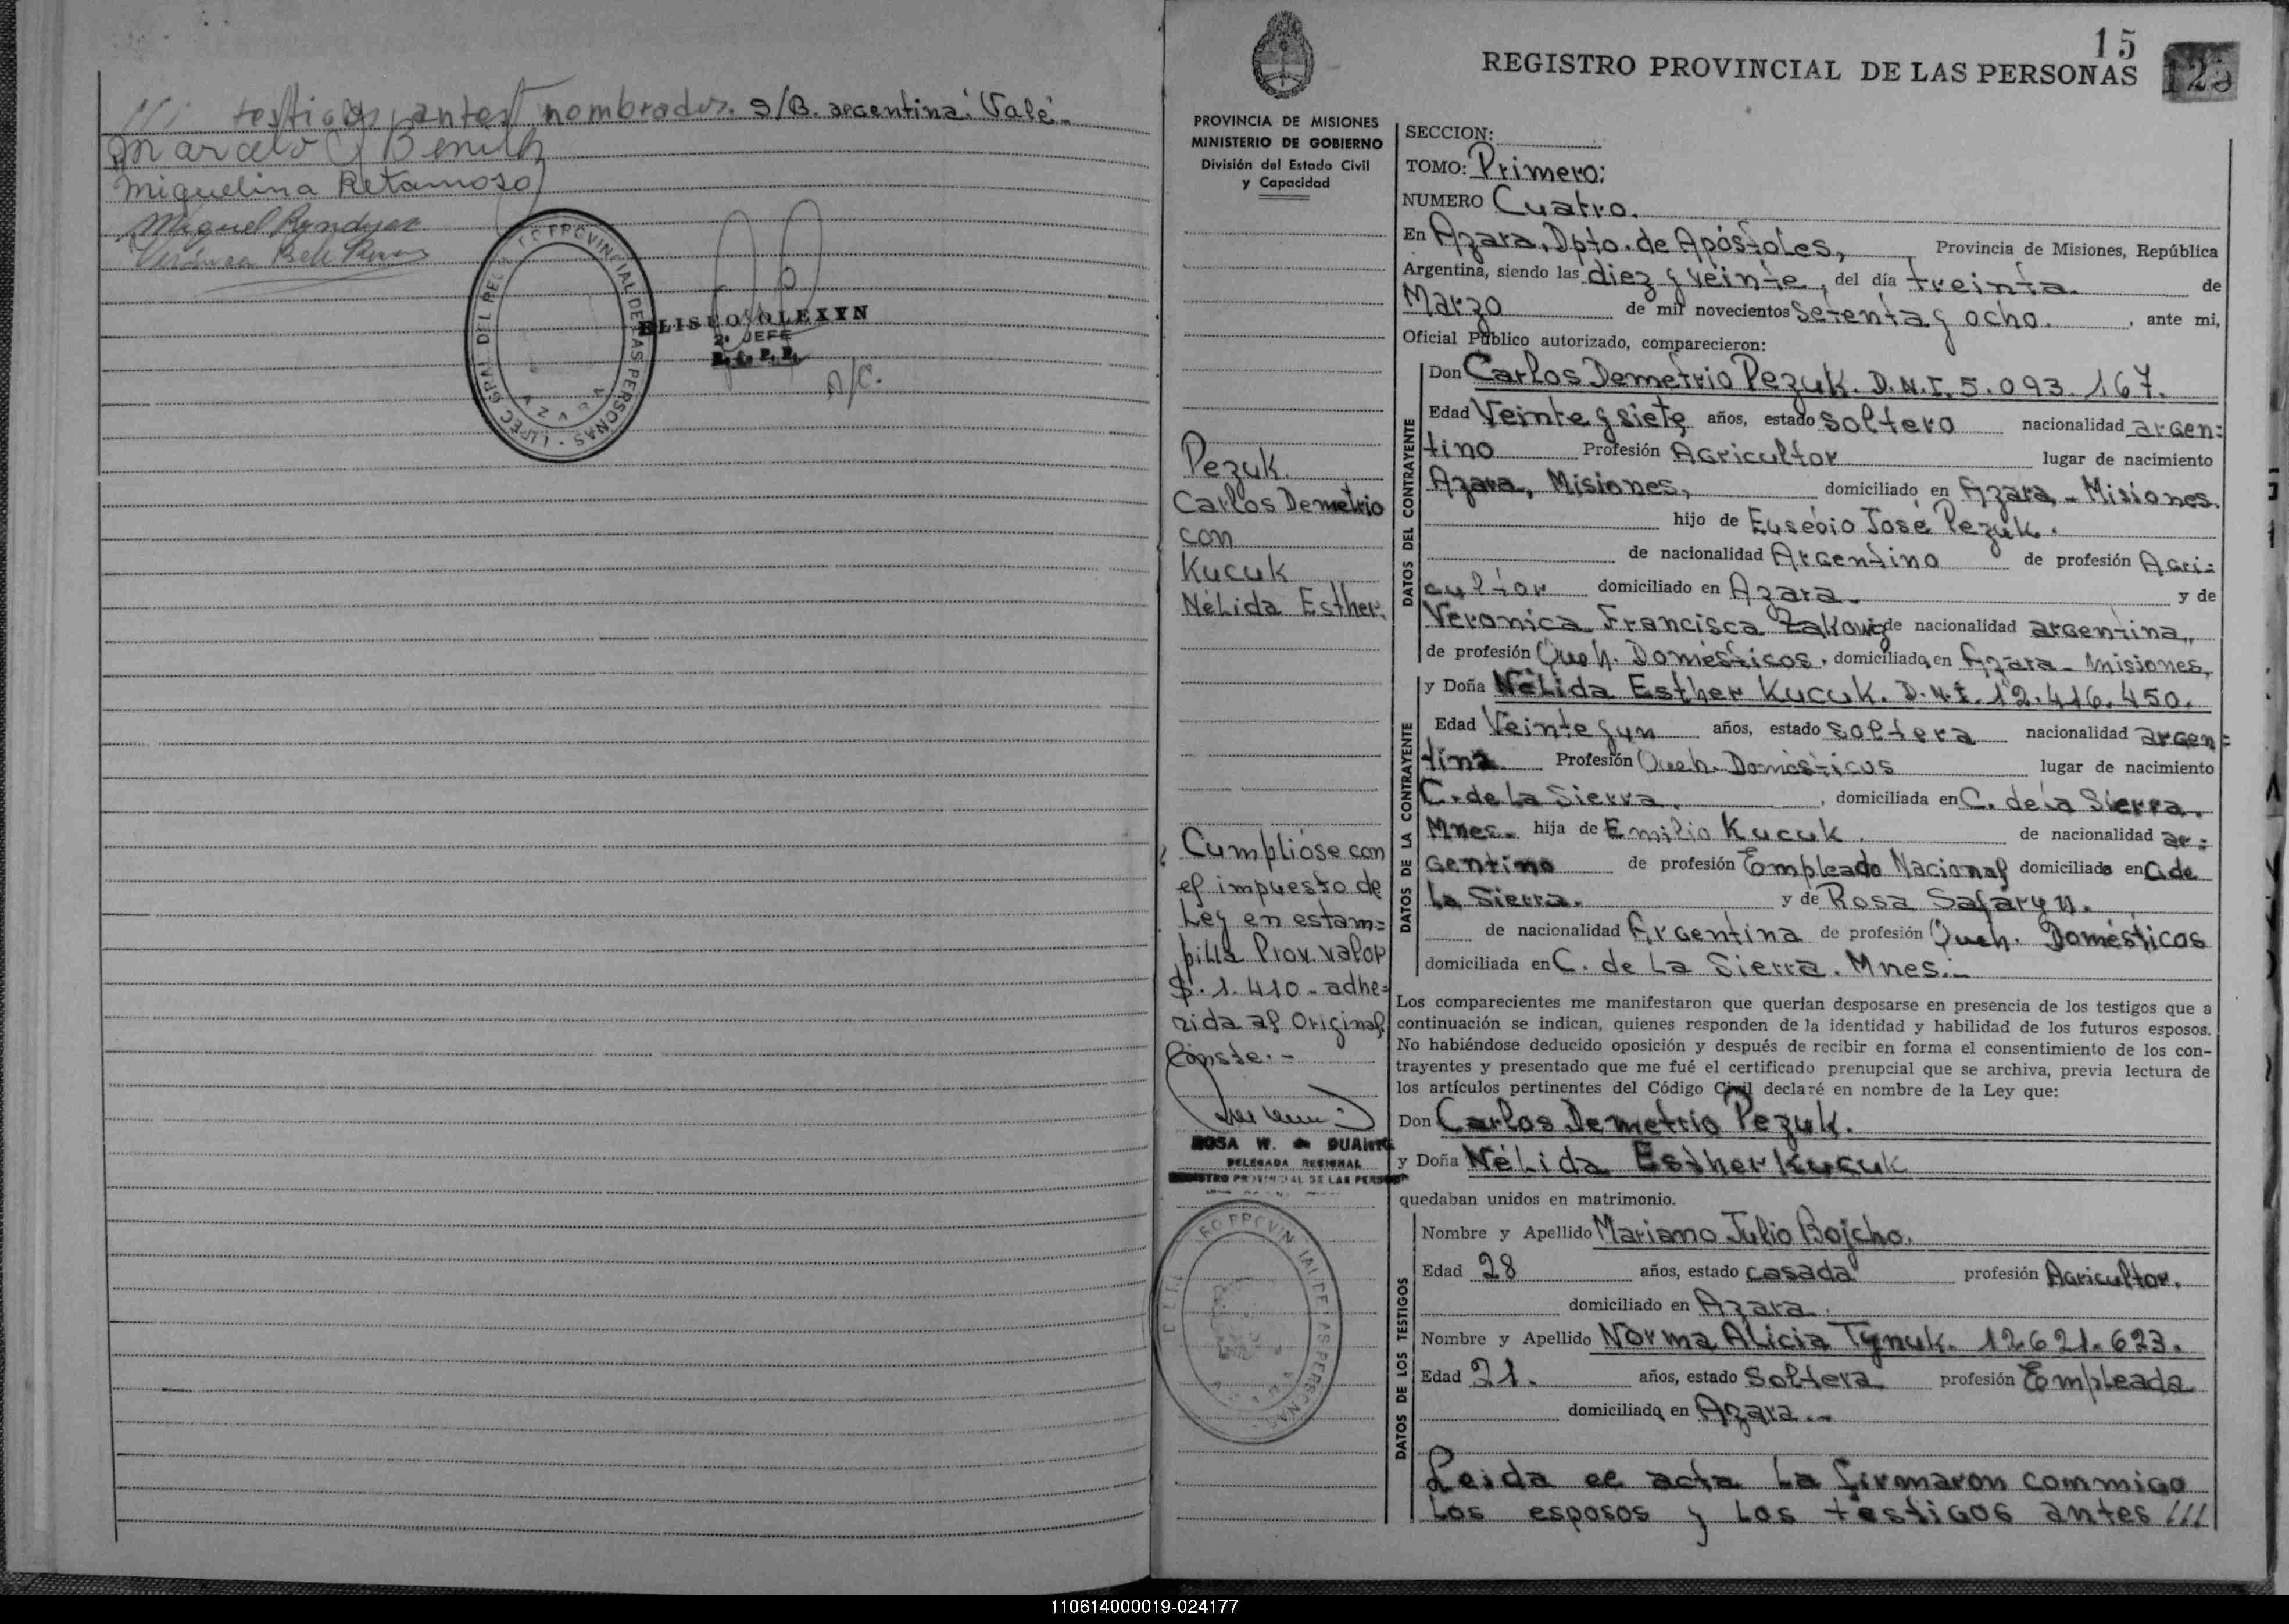 /// testigos antes nombrados. S/B. argentina. Vale.-
Marcelo
Miguelina Retamoso
Miguel
ELISEO OLEXYN
2º JEFE
A/C.
AZARA
15
REGISTRO PROVINCIAL DE LAS PERSONAS
123
PROVINCIA DE MISIONES
MINISTERIO DE GOBIERNO
División del Estado Civil
y Capacidad
Pezuk
Carlos Demetrio
con
Kucuk
Nélida Esther.
Cumplióse con
el impuesto de
Ley en estam=
pilla Prov. valor
$. 1.410.- adhe=
rida al Original
Conste.-
ROSA W. de DUARTE
DELEGADA REGIONAL
REGISTRO PROVINCIAL DE LAS PERSONAS
SECCION:
TOMO: Primero:
NUMERO Cuatro.
En Azara, Dpto. de Apóstoles, Provincia de Misiones, República
Argentina, siendo las diez y veinte, del día treinta de
Marzo de mil novecientos Setenta y ocho. , ante mi,
Oficial Público autorizado, comparecieron:
DATOS DEL CONTRAYENTE
Don Carlos Demetrio Pezuk. D.N.I. 5.093.167.
Edad Veinte y siete años, estado soltero nacionalidad argen=
tino Profesión Agricultor lugar de nacimiento
Azara, Misiones, domiciliado en Azara - Misiones.
hijo de Eusebio José Pezuk.
de nacionalidad Argentino de profesión Agri=
cultor domiciliado en Azara. y de
Veronica Francisca Zakowiz de nacionalidad argentina,
de profesión Queh. Domésticos. domiciliada en Azara - Misiones,
DATOS DE LA CONTRAYENTE
y Doña Nélida Esther Kucuk. D.N.I. 12.416.450.
Edad Veinte y un años, estado soltera nacionalidad argen=
tina Profesión Queh. Domésticos lugar de nacimiento
C. de La Sierra. , domiciliada en C. de la Sierra.
Mnes. hija de Emilio Kucuk. de nacionalidad ar=
gentino de profesión Empleado Nacional domiciliado en C. de
La Sierra. y de Rosa Safaryn.
de nacionalidad Argentina de profesión Queh. Domésticos
domiciliada en C. de La Sierra. Mnes.-
Los comparecientes me manifestaron que querían desposarse en presencia de los testigos que a
continuación se indican, quienes responden de la identidad y habilidad de los futuros esposos.
No habiéndose deducido oposición y después de recibir en forma el consentimiento de los con-
trayentes y presentado que me fué el certificado prenupcial que se archiva, previa lectura de
los artículos pertinentes del Código Civil declaré en nombre de la Ley que:
Don Carlos Demetrio Pezuk.
y Doña Nélida Esther Kucuk
quedaban unidos en matrimonio.
DATOS DE LOS TESTIGOS
Nombre y Apellido Mariano Julio Bojcho.
Edad 28 años, estado casada profesión Agricultor.
domiciliado en Azara.
Nombre y Apellido Norma Alicia Tynuk. 12621.623.
Edad 21. años, estado Soltera profesión Empleada
domiciliada en Azara.-
Leida el acta La firmaron commigo
Los esposos y Los testigos antes ///
110614000019-024177